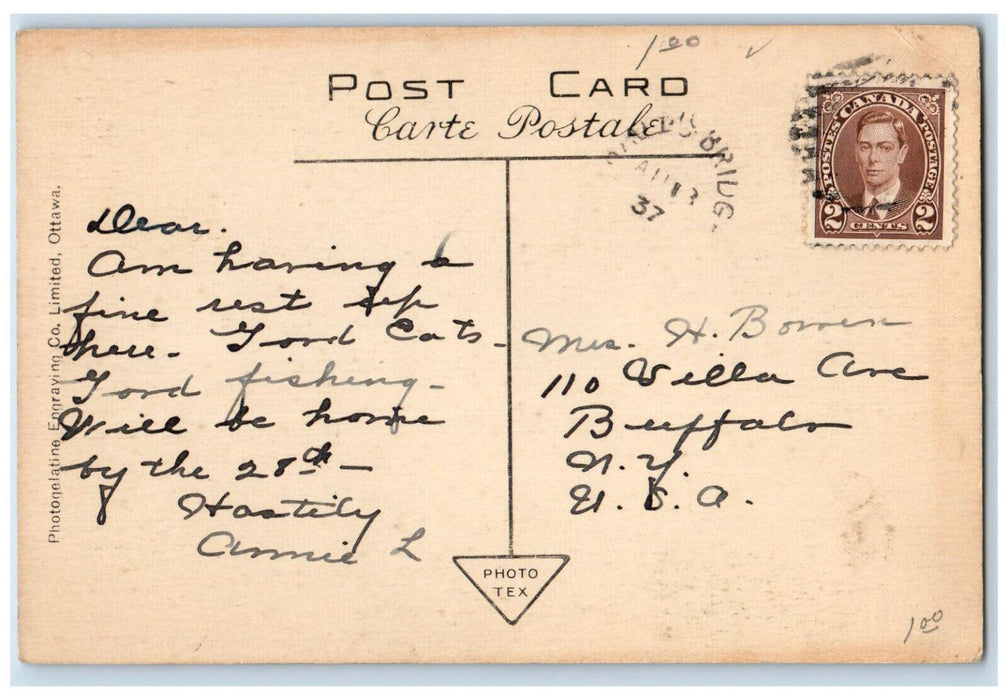 1 00
POST CARD
Carte Postale
BRIDG.
AU 13
37
POSTES CANADA POSTAGE
2 CENTS 2
Photogelatine Engraving Co. Limited, Ottawa.
Dear.
Am having a
fine rest up
here. Good Eats -
Good fishing -
Will be home
by the 28th -
Hastily
Annie L
Mrs. H. Bowen
110 Villa Ave
Buffalo
N. Y.
U. S. A.
PHOTO
TEX
1 00